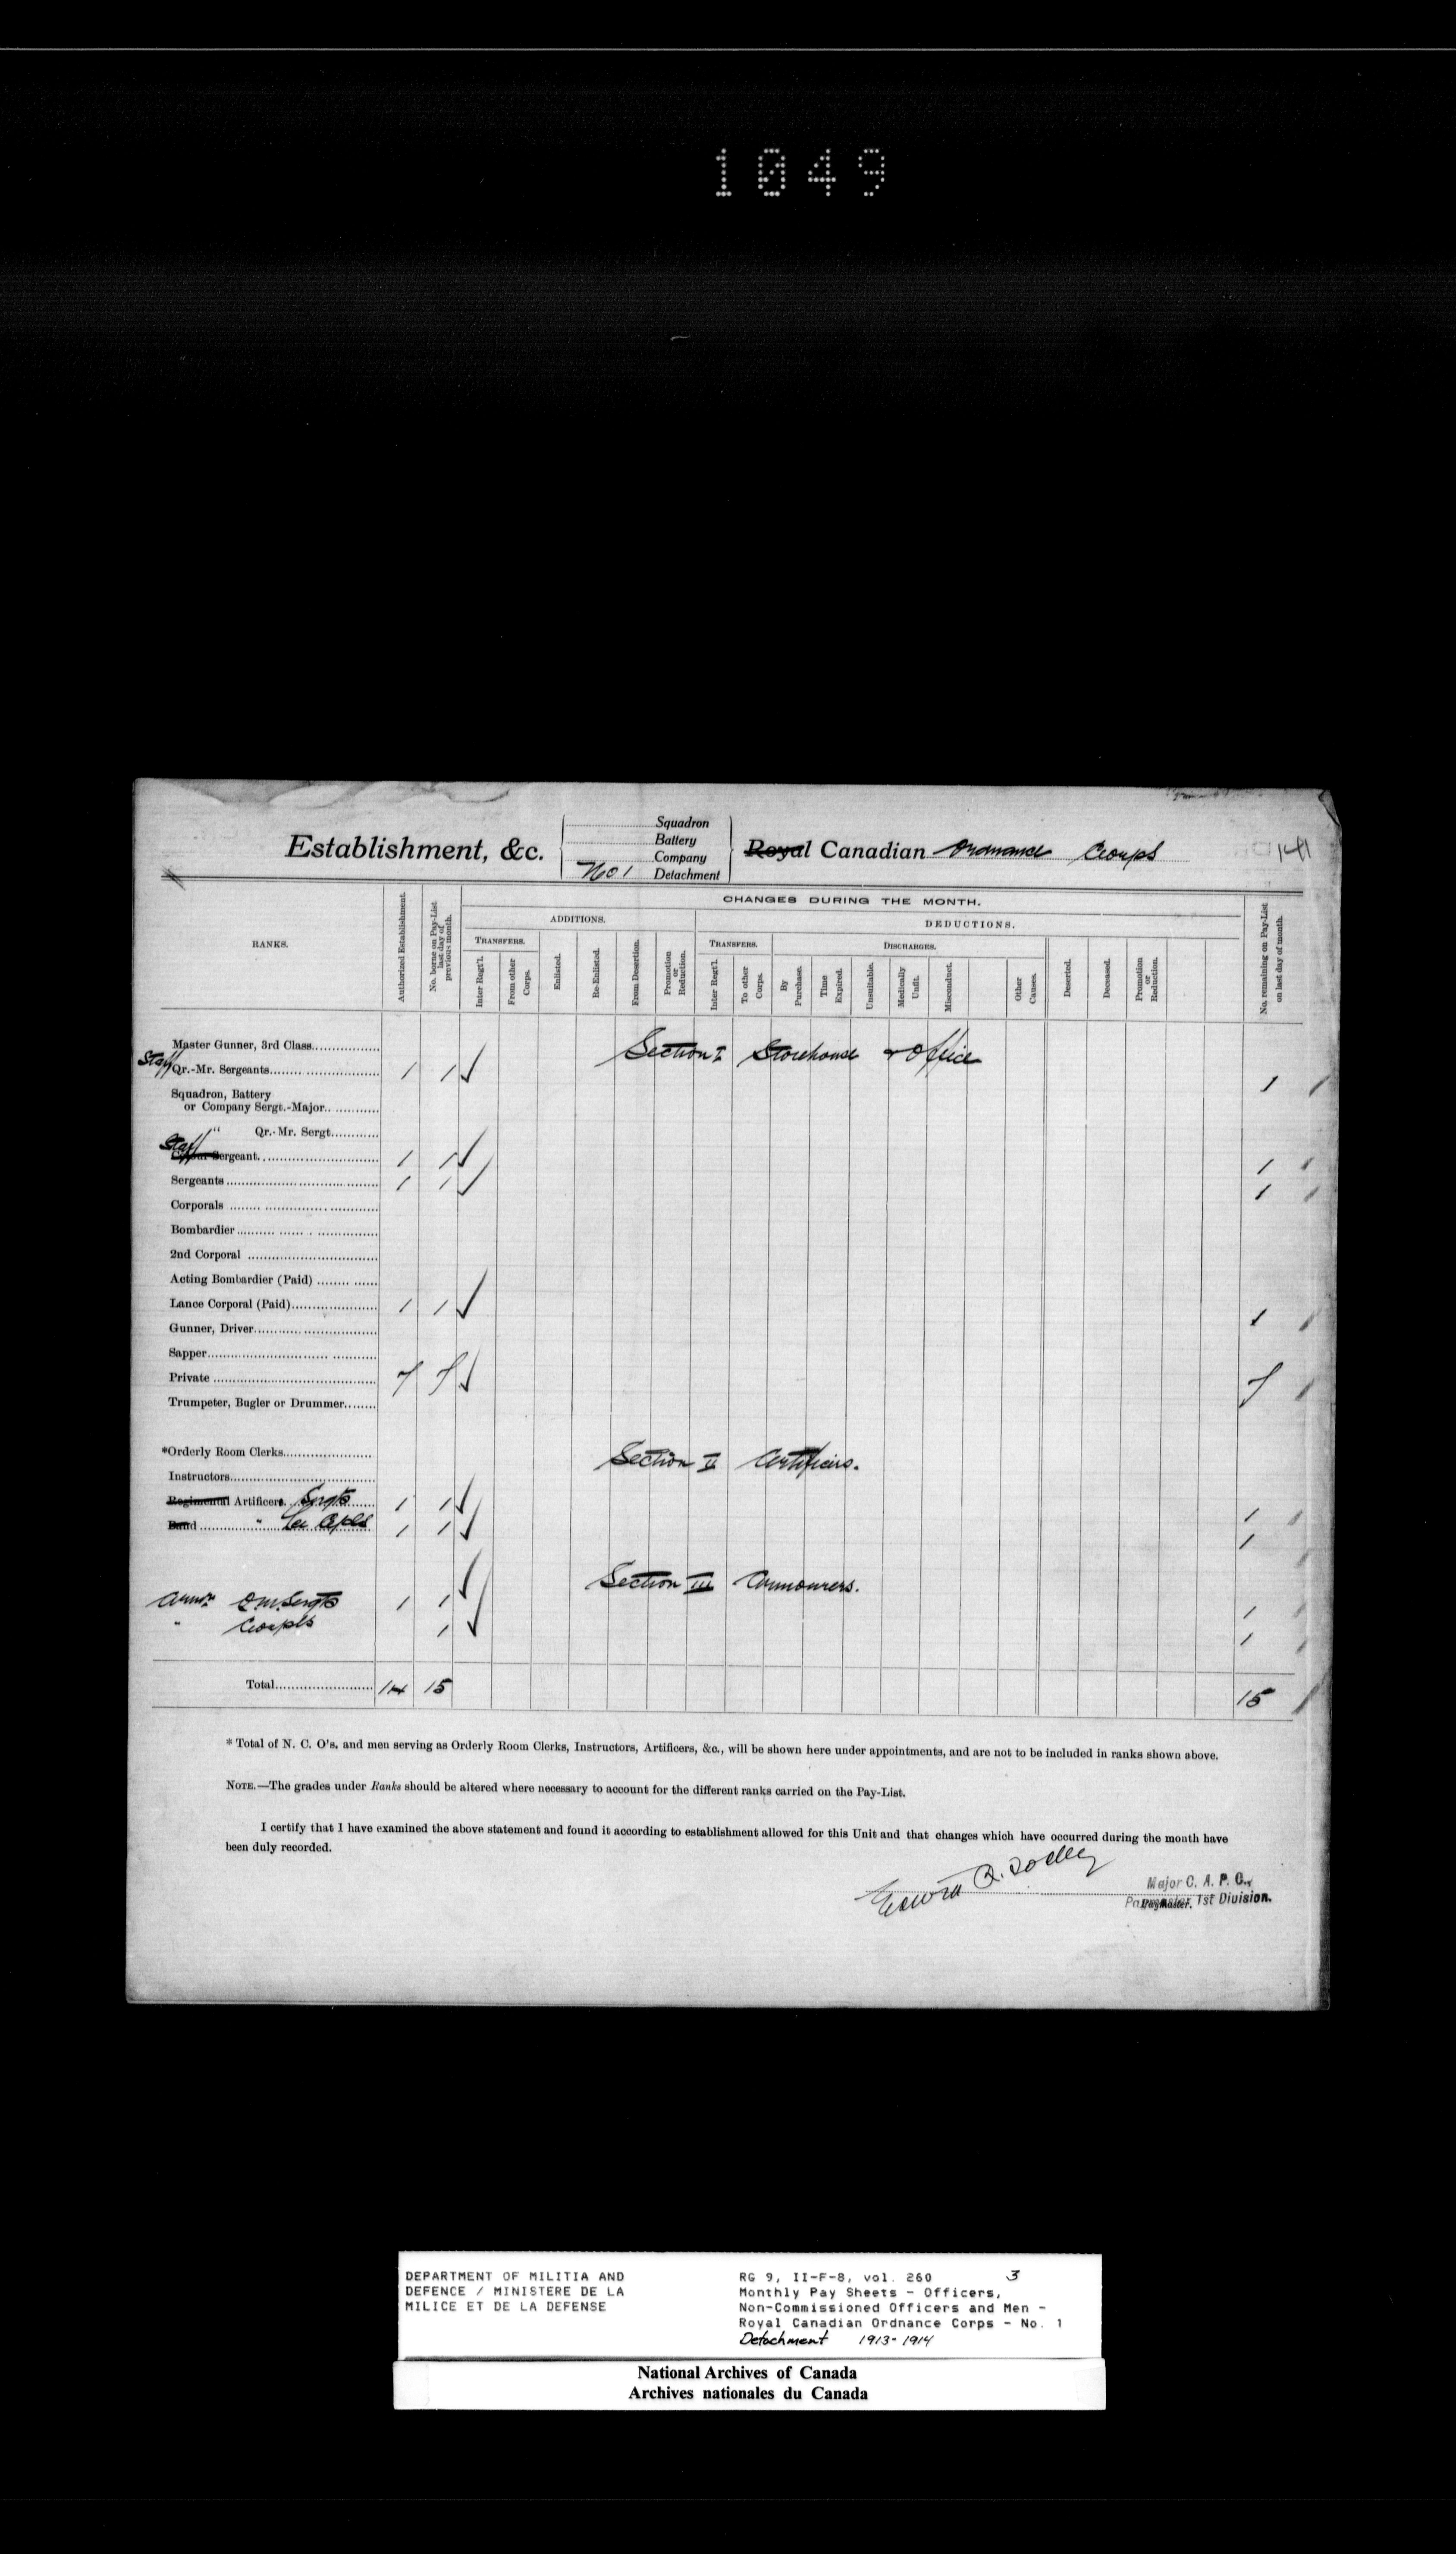 1049
Establishment, &c.
Squadron
Battery
Company
No 1 Detachment
Royal Canadian Ordnance Corps
RANKS.
Authorized Establishment.
No. borne on Pay-List last day of previous month.
CHANGES DURING THE MONTH.
ADDITIONS.
DEDUCTIONS.
TRANSFERS.
TRANSFERS.
DISCHARGES.
Inter Regt'l.
From other Corps.
Enlisted.
Re-Enlisted.
From Desertion.
Promotion or Reduction.
Inter Regt'l.
To other Corps.
By Purchase.
Time Expired.
Unsuitable.
Medically Unfit.
Misconduct.
Other Causes.
Deserted.
Deceased.
Promotion or Reduction.
No. remaining on Pay-List on last day of month.
Master Gunner, 3rd Class
Section I Storehouse & Office
Staff Qr.-Mr. Sergeants 1 1 1
Squadron, Battery
or Company Sergt.-Major
" Qr.-Mr. Sergt
Staff Sergeant 1 1 1
Sergeants 1 1 1
Corporals
Bombardier
2nd Corporal
Acting Bombardier (Paid)
Lance Corporal (Paid) 1 1 1
Gunner, Driver
Sapper
Private 7 7 7
Trumpeter, Bugler or Drummer
*Orderly Room Clerks
Section II Artificers.
Instructors
Regimental Artificers. Sergts 1 1 1
Band " 1 1 1
Section III Armourers.
Armr. Q.M. Sergts 1 1 1
" Corpls 1 1
Total 14 15 15
* Total of N. C. O's. and men serving as Orderly Room Clerks, Instructors, Artificers, &c., will be shown here under appointments, and are not to be included in ranks shown above.
NOTE.—The grades under Ranks should be altered where necessary to account for the different ranks carried on the Pay-List.
I certify that I have examined the above statement and found it according to establishment allowed for this Unit and that changes which have occurred during the month have
been duly recorded.
Major C. A. P. C.,
Paymaster 1st Division.
Paymaster.
DEPARTMENT OF MILITIA AND
DEFENCE / MINISTERE DE LA
MILICE ET DE LA DEFENSE
RG 9, II-F-8, vol. 260 3
Monthly Pay Sheets - Officers,
Non-Commissioned Officers and Men -
Royal Canadian Ordnance Corps - No. 1
Detachment 1913-1914
National Archives of Canada
Archives nationales du Canada